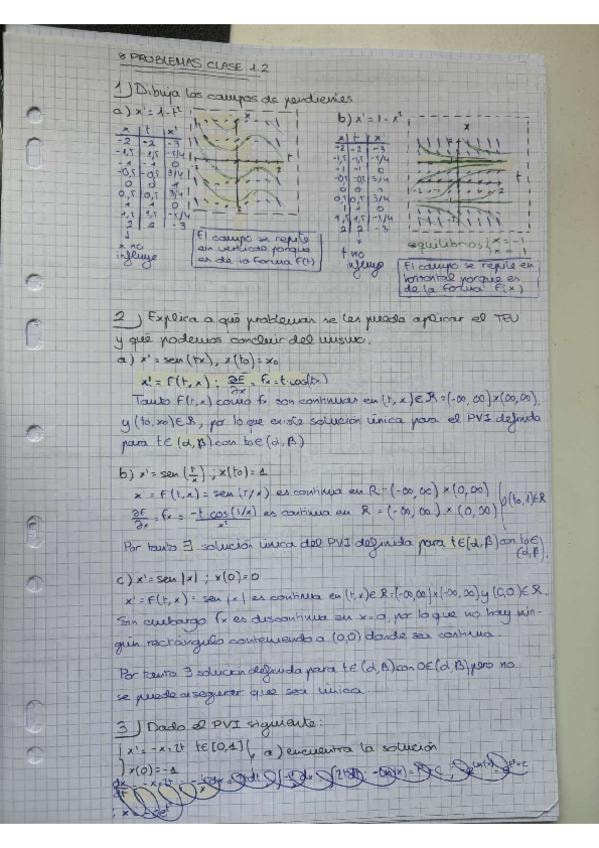 8 PROBLEMAS CLASE 1.2
1) Dibuja los campos de pendientes
a) x' = 1-t²
b) x' = 1-x²
x t x'
-2 -2 -3
-1,5 -1,5 -5/4
-1 -1 0
-0,5 -0,5 3/4
0 0 1
0,5 0,5 3/4
1 1 0
1,5 1,5 -5/4
2 2 -3
x no
influye
El campo se repite
en vertical porque
es de la forma f(t)
x t x'
-2 -2 -3
-1,5 -1,5 -5/4
-1 -1 0
-0,5 -0,5 3/4
0 0
0,5 0,5 3/4
1 1 0
1,5 1,5 -5/4
2 2 -3
t no
influye
equilibrios { x = -1
x = 1
El campo se repite en
horizontal porque es
de la forma f(x)
2) Explica a qué problemas se les puede aplicar el TEU
y qué podemos concluir del mismo.
a) x' = sen(tx), x(t0) = x0
x' = F(t,x) ; ∂F/∂x = fx = t·cos(tx)
Tanto F(t,x) como fx son continuas en (t,x) ∈ R = (-∞,∞)x(∞,∞),
y (t0,x0) ∈ R, por lo que existe solución única para el PVI definida
para t ∈ (α,β) con t0 ∈ (α,β)
b) x' = sen(t/x) ; x(t0) = 1
x' = F(t,x) = sen(t/x) es continua en R = (-∞,∞) x (0,∞)
∂F/∂x = fx = -t cos(t/x)/x² es continua en R = (-∞,∞) x (0,∞) (t0,1) ∈ R
Por tanto ∃ solución única del PVI definida para t ∈ (α,β) con t0 ∈
(α,β).
c) x' = sen|x| ; x(0) = 0
x' = F(t,x) = sen|x| es continua en (t,x) ∈ R = (-∞,∞)x(-∞,∞) y (0,0) ∈ R.
Sin embargo fx es discontinua en x=0, por lo que no hay nin-
gún rectángulo conteniendo a (0,0) donde sea continua.
Por tanto ∃ solución definida para t ∈ (α,β) con 0 ∈ (α,β), pero no
se puede asegurar que sea única.
3) Dado el PVI siguiente:
x' = -x+2t t ∈ [0,1] a) encuentra la solución
x(0) = -1